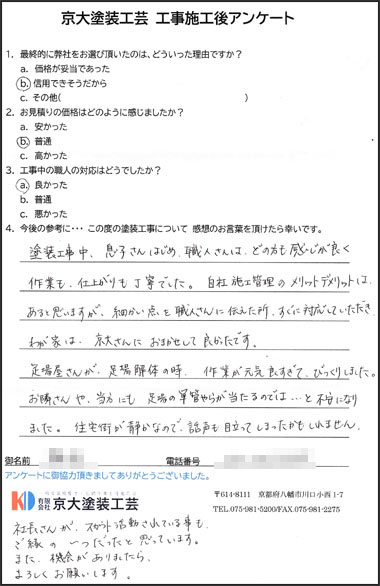 京大塗装工芸 工事施工後アンケート
1. 最終的に弊社をお選び頂いたのは、どういった理由ですか?
a. 価格が妥当であった
b. 信用できそうだから
c. その他( )
2. お見積りの価格はどのように感じましたか?
a. 安かった
b. 普通
c. 高かった
3. 工事中の職人の対応はどうでしたか?
a. 良かった
b. 普通
c. 悪かった
4. 今後の参考に・・・ この度の塗装工事について 感想のお言葉を頂けたら幸いです。
塗装工事中、息子さんはじめ、職人さんは、どの方も感じが良く
作業も、仕上がりも丁寧でした。自社施工管理のメリットデメリットは、
あると思いますが、細かい点を職人さんに伝えた所、すぐに対応していただき、
わが家は、京大さんにおまかせして良かったです。
足場屋さんが、足場解体の時、作業が元気良すぎて、びっくりしました。
お隣さんや、当方にも足場の単管やらが当たるのでは…と不安になり
ました。住宅街が静かなので、話声も目立ってしまったかもしれません。
御名前
電話番号
アンケートに御協力頂きましてありがとうございました。
KD 有限会社 京大塗装工芸
〒614-8111 京都府八幡市川口小西 1-7
TEL.075-981-5200/FAX.075-981-2275
社長さんが、スカウト活動されている事も、
ご縁の一つだったと思っています。
また、機会がありましたら、
よろしくお願いします。